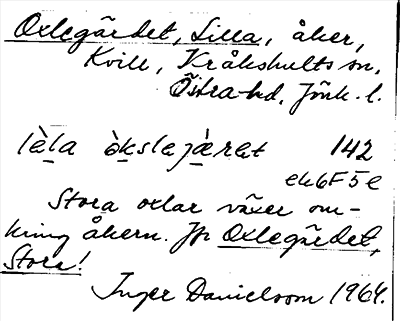 Oxlegärdet, Lilla, åker,
Kvill, Kråkshults sn,
Östra hd, Jönk. l.
lèla òkslejæ̀ret 142
ek6F5e
Stora oxlar växer om-
kring åkern. Jfr Oxlegärdet,
Stora!
Inger Danielsson 1964.